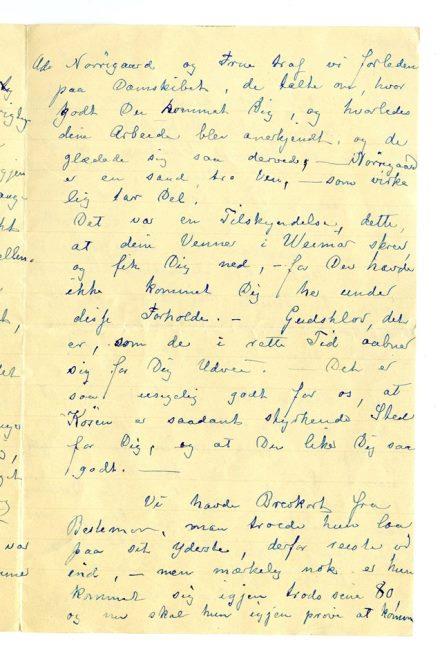 Ad. Nørregaard og Frue traf vi forleden
paa Damskibet, de talte om, hvor
godt Du kommet Dig, og hvorledes
dine Arbeider blev anerkjendt, og de
glædede sig saa derved, — Nørregaard
er en sand, tro Ven, — som virke
lig tar Del.
Det var en Tilskyndelse, dette,
at dine Venner i Weimar skrev
og fik Dig ned, — for Du havde
ikke kommet Dig he under
disse Forholde. — Gudskelov, det
er, som de i rette Tid aabner
sig for Dig Udvei. — Det er
saa usigelig godt for os, at
Kösen er saadant styrkende Sted
for Dig, og at Du liker Dig saa
godt. —
Vi havde Brevkort fra
Bestemor, man troede hun laa
paa sit yderste, derfor reiste vi
ind, — men mækelig nok er hun
kommet sig igjen trods sine 80
og nu skal hun igjen prøve at komme